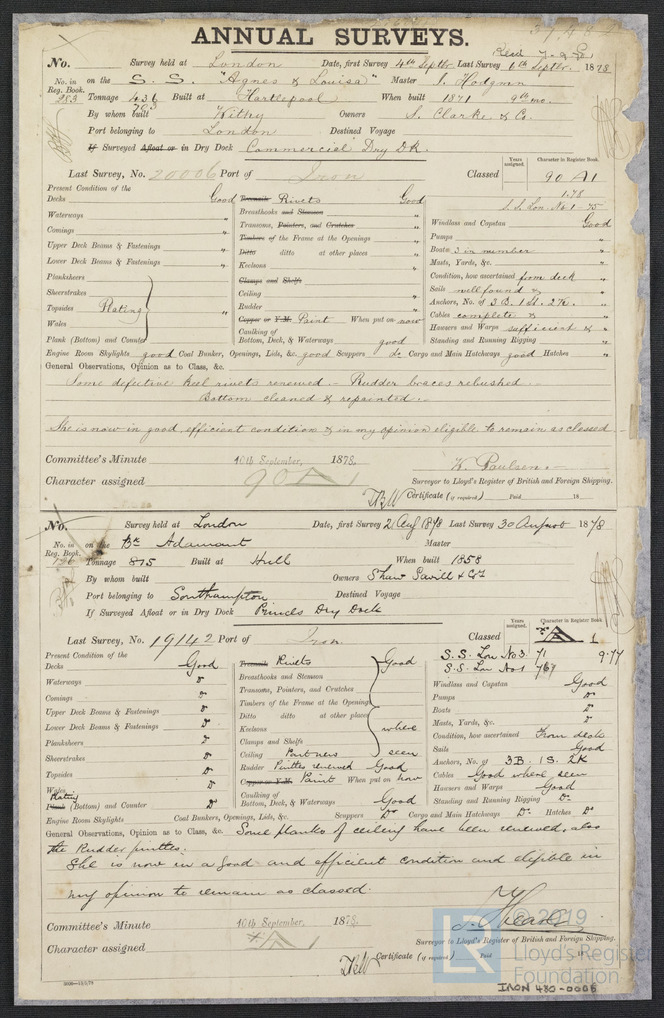 ANNUAL SURVEYS.
No. Survey held at London Date, first Survey 4th Septbr. Last Survey 6th Septbr. 1878
No. in Reg. Book. on the S. S. "Agnes & Louisa" Master J. Hodgman
283 Tonnage 436 703 Built at Hartlepool When built 1871 9th mo.
By whom built Withy Owners J. Clarke & Co.
Port belonging to London Destined Voyage
If Surveyed Afloat or in Dry Dock Commercial Dry Dk.
Last Survey, No. 20006 Port of Iron Classed Years assigned. Character in Register Book. 90 A1
1.78
S.S. Lon. No 1 - 75
Present Condition of the
Decks Good Treenails Rivets Good
Waterways " Breasthooks and Stemson " Windlass and Capstan Good
Comings " Transoms, Pointers, and Crutches " Pumps "
Upper Deck Beams & Fastenings " Timbers of the Frame at the Openings " Boats 3 in number "
Lower Deck Beams & Fastenings " Ditto ditto at other places " Masts, Yards, &c. "
Planksheers Keelsons " Condition, how ascertained from deck "
Sheerstrakes Clamps and Shelfs Sails well found & "
Topsides Plating " Ceiling " Anchors, No. of 3 B. 1 St. 2 K. "
Wales Rudder " Cables complete & "
Copper or Y.M. Paint When put on now Hawsers and Warps sufficient & "
Plank (Bottom) and Counter Caulking of Bottom, Deck, & Waterways good Standing and Running Rigging "
Engine Room Skylights good Coal Bunker, Openings, Lids, &c. good Scuppers do Cargo and Main Hatchways good Hatches "
General Observations, Opinion as to Class, &c.
Some defective keel rivets renewed - Rudder braces rebushed -
Bottom cleaned & repainted -
She is now in good, efficient condition & in my opinion eligible to remain as classed
Committee's Minute 10th September, 1878.
Character assigned 90 A 1
W. Paulsen
Surveyor to Lloyd's Register of British and Foreign Shipping.
Certificate (if required) Paid 18
No. Survey held at London Date, first Survey 2 Aug 1878 Last Survey 30 August 1878
No. in Reg. Book. on the Bk Adamant Master
Tonnage 815 Built at Hull When built 1858
By whom built Owners Shaw Savill & Co
Port belonging to Southampton Destined Voyage
If Surveyed Afloat or in Dry Dock Dry Dock
Last Survey, No. 19142 Port of Iron Classed Years assigned. Character in Register Book. A 1
S.S. Lon No 3. 71 9.77
S.S. Lon No 1
Present Condition of the
Decks Good Treenails Rivets Good
Waterways Do Breasthooks and Stemson Windlass and Capstan Good
Comings Do Transoms, Pointers, and Crutches Pumps Do
Upper Deck Beams & Fastenings Do Timbers of the Frame at the Openings Boats Do
Lower Deck Beams & Fastenings Do Ditto ditto at other places Masts, Yards, &c. Do
Planksheers Do Keelsons where Condition, how ascertained From deck
Sheerstrakes Do Clamps and Shelfs Sails Good
Topsides Do Ceiling Part new seen Anchors, No. of 3B. 1S. 2K
Wales Do Rudder Pintles renewed Good Cables Good where seen
Copper or Y.M. Paint When put on now Hawsers and Warps Good
Plating Plank (Bottom) and Counter Do Caulking of Bottom, Deck, & Waterways Good Standing and Running Rigging Do
Engine Room Skylights Coal Bunkers, Openings, Lids, &c. Scuppers Do Cargo and Main Hatchways Do Hatches Do
General Observations, Opinion as to Class, &c. Some planks of ceiling have been renewed, also
the Rudder pintles.
She is now in a good and efficient condition and eligible in
my opinion to remain as classed.
Committee's Minute 10th September, 1878.
Character assigned A 1
Surveyor to Lloyd's Register of British and Foreign Shipping.
Certificate (if required) Paid 18
© 2019
LR Lloyd's Register Foundation
IRON 480-0008